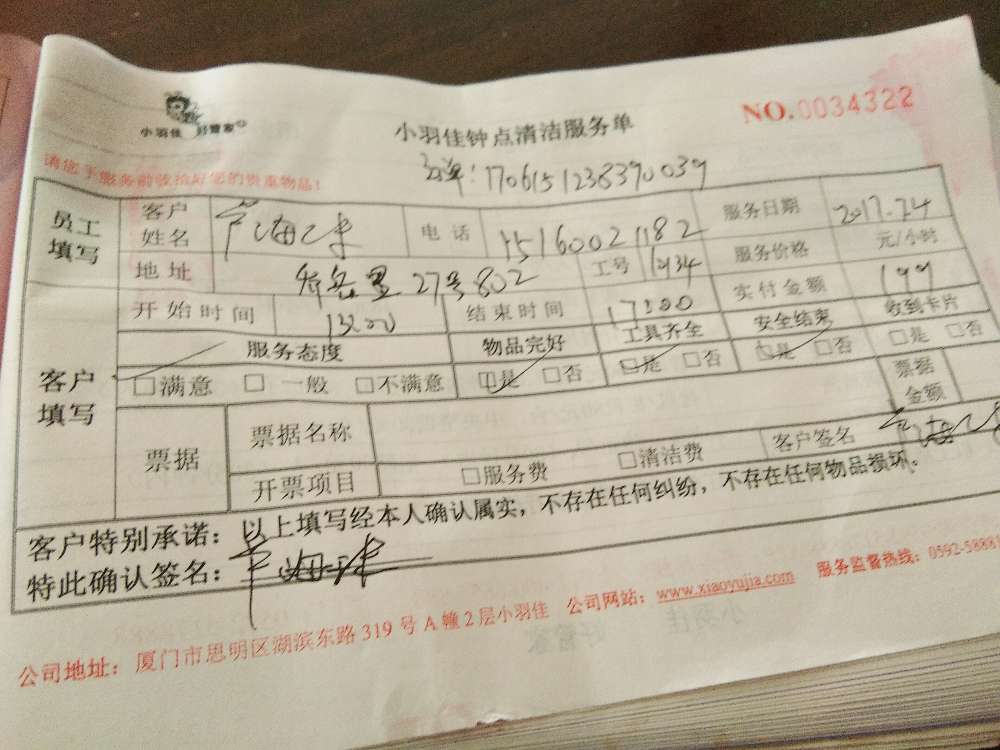 小羽佳 好管家
小羽佳钟点清洁服务单
NO.0034322
订单:1706151238390039
请您于服务前收拾好您的贵重物品!
员工填写
客户姓名 电话 15160021182 服务日期 2017.7.4
地址 27号802 工号 服务价格 元/小时
开始时间 结束时间 17:00 实付金额 199
客户填写
服务态度 物品完好 工具齐全 安全结束 收到卡片
□满意 □一般 □不满意 □是 □否 □是 □否 □是 □否 □是 □否
票据 票据名称 票据金额
开票项目 □服务费 □清洁费 客户签名
客户特别承诺:以上填写经本人确认属实,不存在任何纠纷,不存在任何物品损坏。
特此确认签名:
公司地址:厦门市思明区湖滨东路319号A幢2层小羽佳 公司网站:www.xiaoyujia.com 服务监督热线:0592-58881